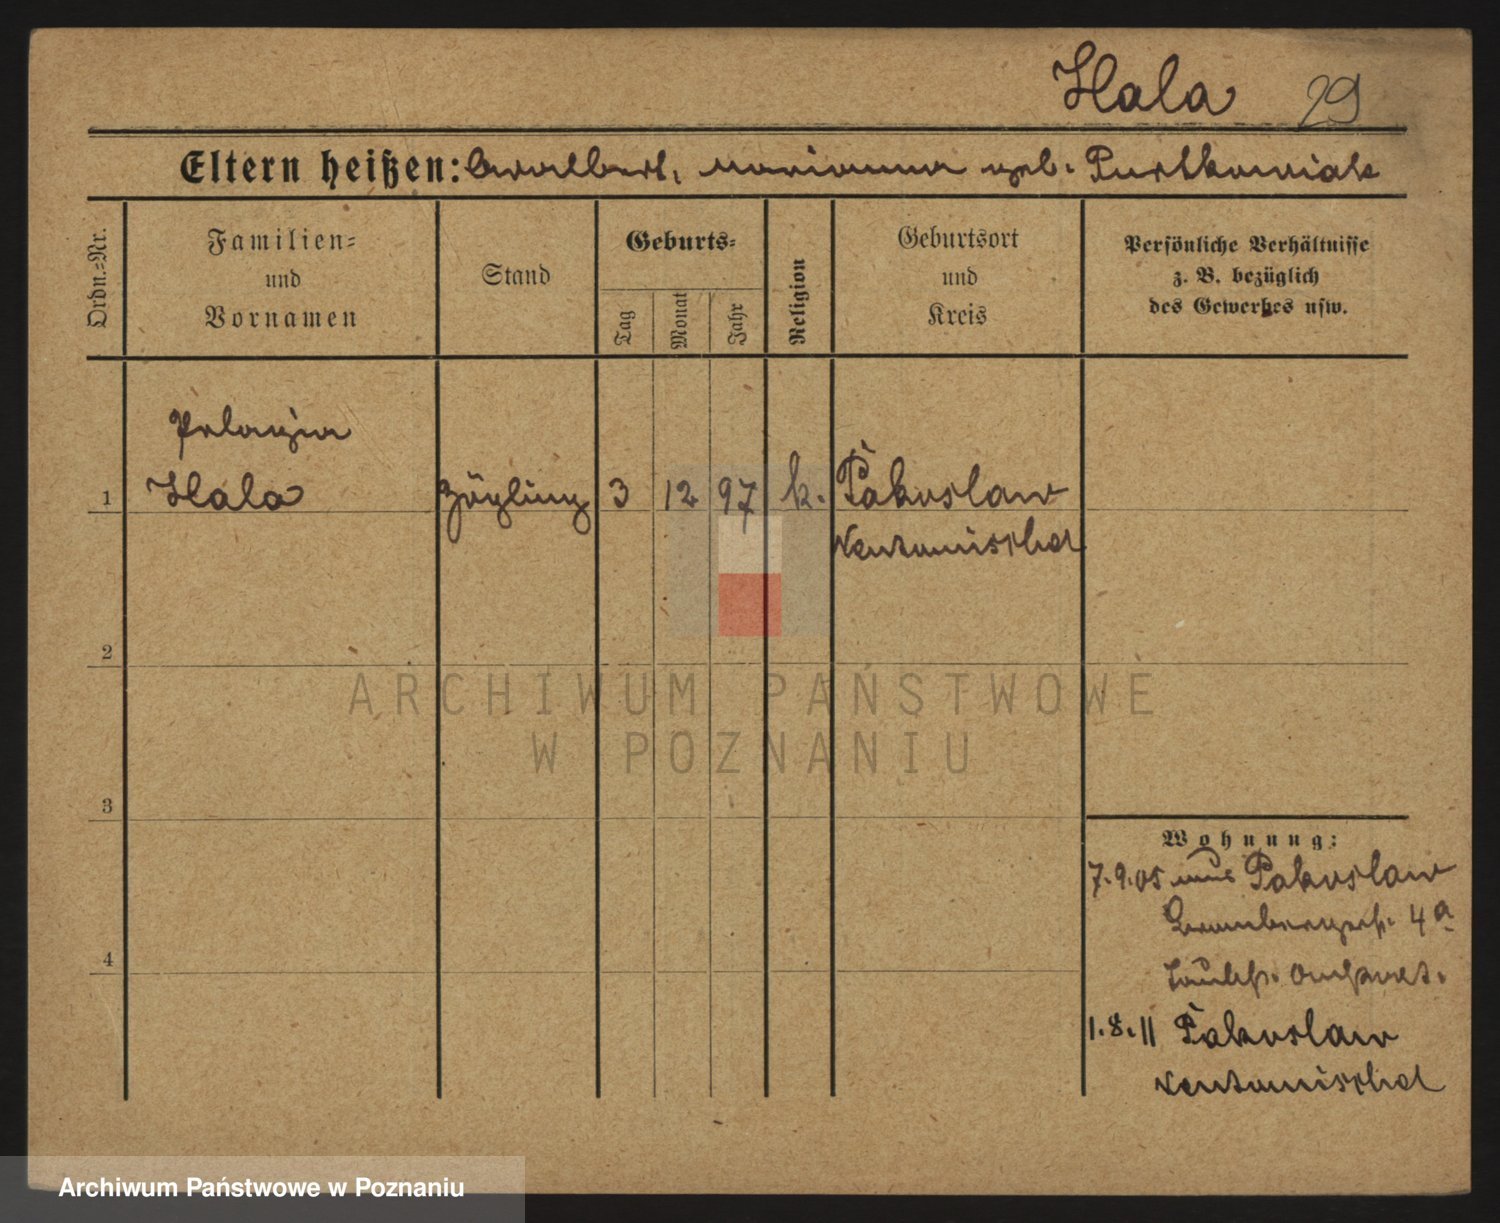 Hala 29
Eltern heißen: Adalbert, Marianna geb. Purtkowiak
Ordn.=Nr.
Familien=
und
Vornamen
Stand
Geburts=
Tag
Monat
Jahr
Religion
Geburtsort
und
Kreis
Persönliche Verhältnisse
z. B. bezüglich
des Gewerbes usw.
Pelagia
1 Hala Zögling 3 12 97 k. Pakoslaw
Neutomischel
2
3
4
Wohnung:
7.9.05 aus Pakoslaw
Brombergerstr. 4a
Taubst. Anstalt.
1.8.11 Pakoslaw
Neutomischel
ARCHIWUM PAŃSTWOWE
W POZNANIU
Archiwum Państwowe w Poznaniu